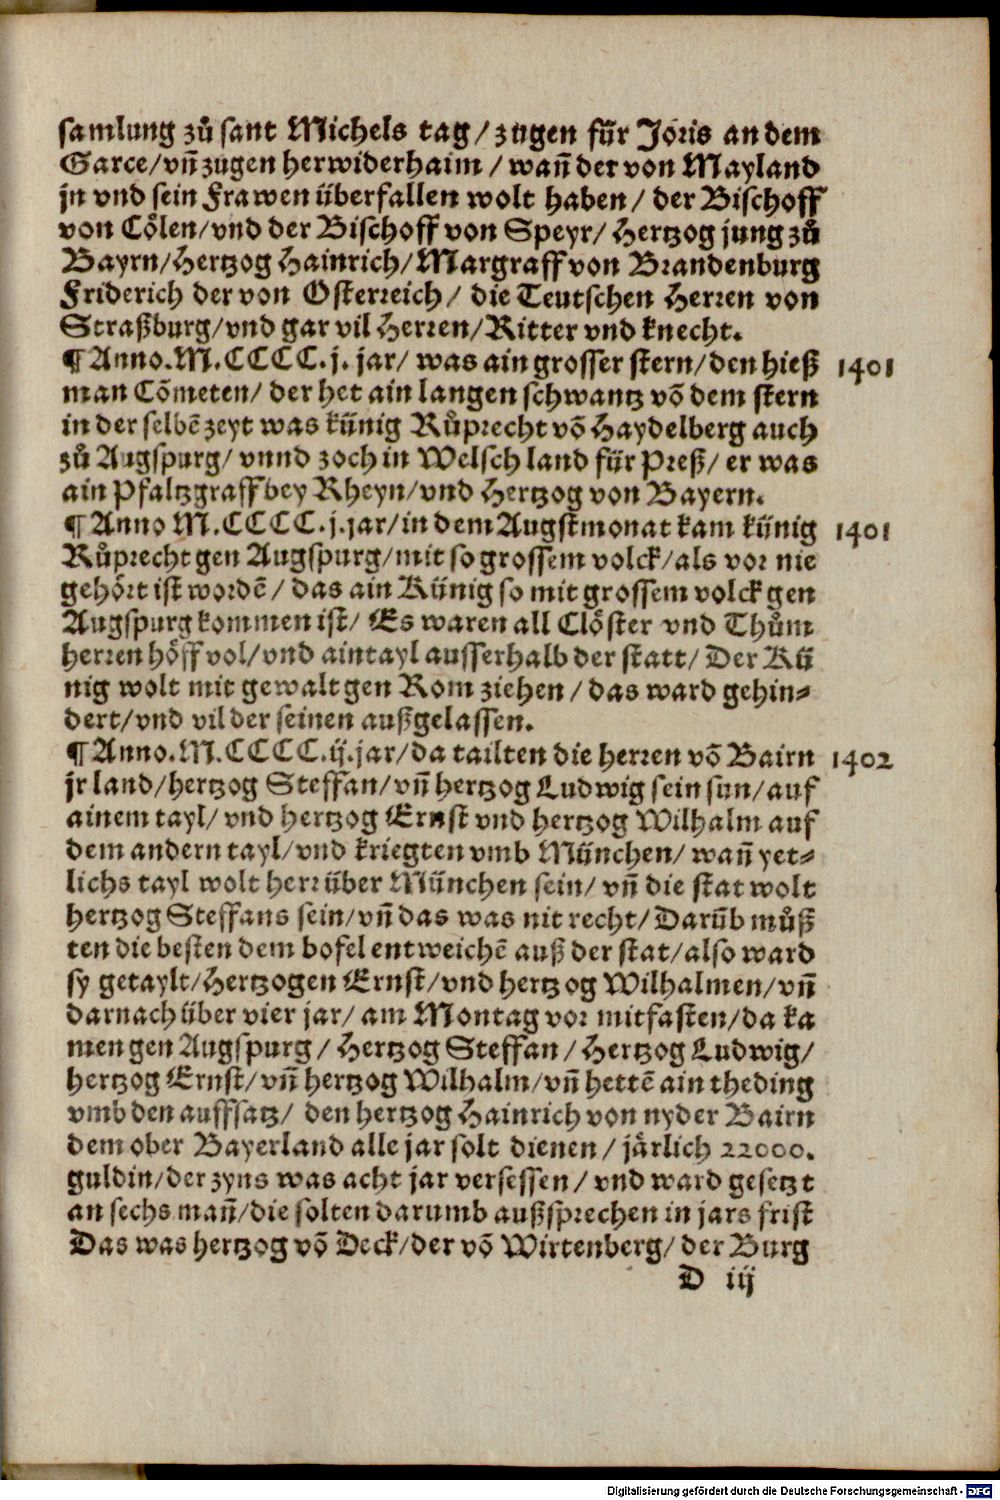 samlung zů sant Michels tag / zugen für Joris an dem
Garce / vñ zugen herwiderhaim / wañ der von Mayland
jn vnd sein Frawen überfallen wolt haben / der Bischoff
von Cölen / vnd der Bischoff von Speyr / Hertzog jung zů
Bayrn / Hertzog Hainrich / Margraff von Brandenburg
Friderich der von Osterreich / die Teutschen Herren von
Straßburg / vnd gar vil Herren / Ritter vnd knecht.
¶ Anno. M. CCCC. j. jar / was ain grosser stern / den hieß 1401
man Cõmeten / der het ain langen schwantz võ dem stern
in der selbẽ zeyt was künig Růprecht võ Haydelberg auch
zů Augspurg / vnnd zoch in Welsch land für Preß / er was
ain Pfaltzgraff bey Rheyn / vnd Hertzog von Bayern.
¶ Anno M. CCCC. j. jar / in dem Augstmonat kam künig 1401
Růprecht gen Augspurg / mit so grossem volck / als vor nie
gehört ist wordẽ / das ain Künig so mit grossem volck gen
Augspurg kommen ist / Es waren all Clöster vnd Thům
herren höff vol / vnd ain tayl ausserhalb der statt / Der Kü
nig wolt mit gewalt gen Rom ziehen / das ward gehin⸗
dert / vnd vil der seinen außgelassen.
¶ Anno. M. CCCC. ij. jar / da tailten die herren võ Bairn 1402
jr land / hertzog Steffan / vñ hertzog Ludwig sein sun / auf
ainem tayl / vnd hertzog Ernst vnd hertzog Wilhalm auf
dem andern tayl / vnd kriegten vmb München / wañ yet⸗
lichs tayl wolt herr über München sein / vñ die stat wolt
hertzog Steffans sein / vñ das was nit recht / Darũb můß
ten die besten dem bofel entweichẽ auß der stat / also ward
sy getaylt / Hertzogen Ernst / vnd hertzog Wilhalmen / vñ
darnach über vier jar / am Montag vor mitfasten / da ka
men gen Augspurg / Hertzog Steffan / Hertzog Ludwig /
hertzog Ernst / vñ hertzog Wilhalm / vñ hettẽ ain theding
vmb den auffsatz / den hertzog Hainrich von nyder Bairn
dem ober Bayerland alle jar solt dienen / järlich 22000.
guldin / der zyns was acht jar versessen / vnd ward gesetzt
an sechs mañ / die solten darumb außsprechen in jars frist
Das was hertzog võ Deck / der võ Wirtenberg / der Burg
D iij
Digitalisierung gefördert durch die Deutsche Forschungsgemeinschaft - DFG